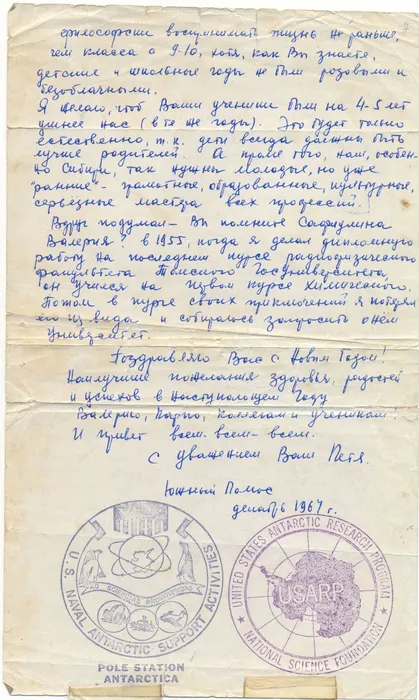 философски воспринимать жизнь не раньше,
чем класса с 9-10, хотя, как Вы знаете,
детские и школьные годы не были розовыми и
безоблачными.
Я желаю, чтоб Ваши ученики были на 4-5 лет
умнее нас (в те же годы). Это будет только
естественно, т.к. дети всегда должны быть
лучше родителей. А кроме того, нам, особен-
но Сибири, так нужны молодые, но уже
"ранние" - грамотные, образованные, культурные,
серьёзные мастера всех профессий.
Вдруг подумал - Вы помните Сафиулина
Валерия? в 1955, когда я делал дипломную
работу на последнем курсе радиофизического
факультета Томского Госуниверситета,
он учился на первом курсе химического.
Потом в пурге своих приключений я потерял
его из вида и собираюсь запросить о нём
Университет.
Поздравляю Вас с Новым Годом!
Наилучшие пожелания здоровья, радостей
и успехов в наступающем Году
Валерию, Коллегам и ученикам!
И привет всем-всем-всем.
С уважением Ваш Петя.
Южный Полюс
декабрь 1967 г.
U.S. NAVAL ANTARCTIC SUPPORT ACTIVITIES
POLE STATION
ANTARCTICA
UNITED STATES ANTARCTIC RESEARCH PROGRAM
USARP
NATIONAL SCIENCE FOUNDATION